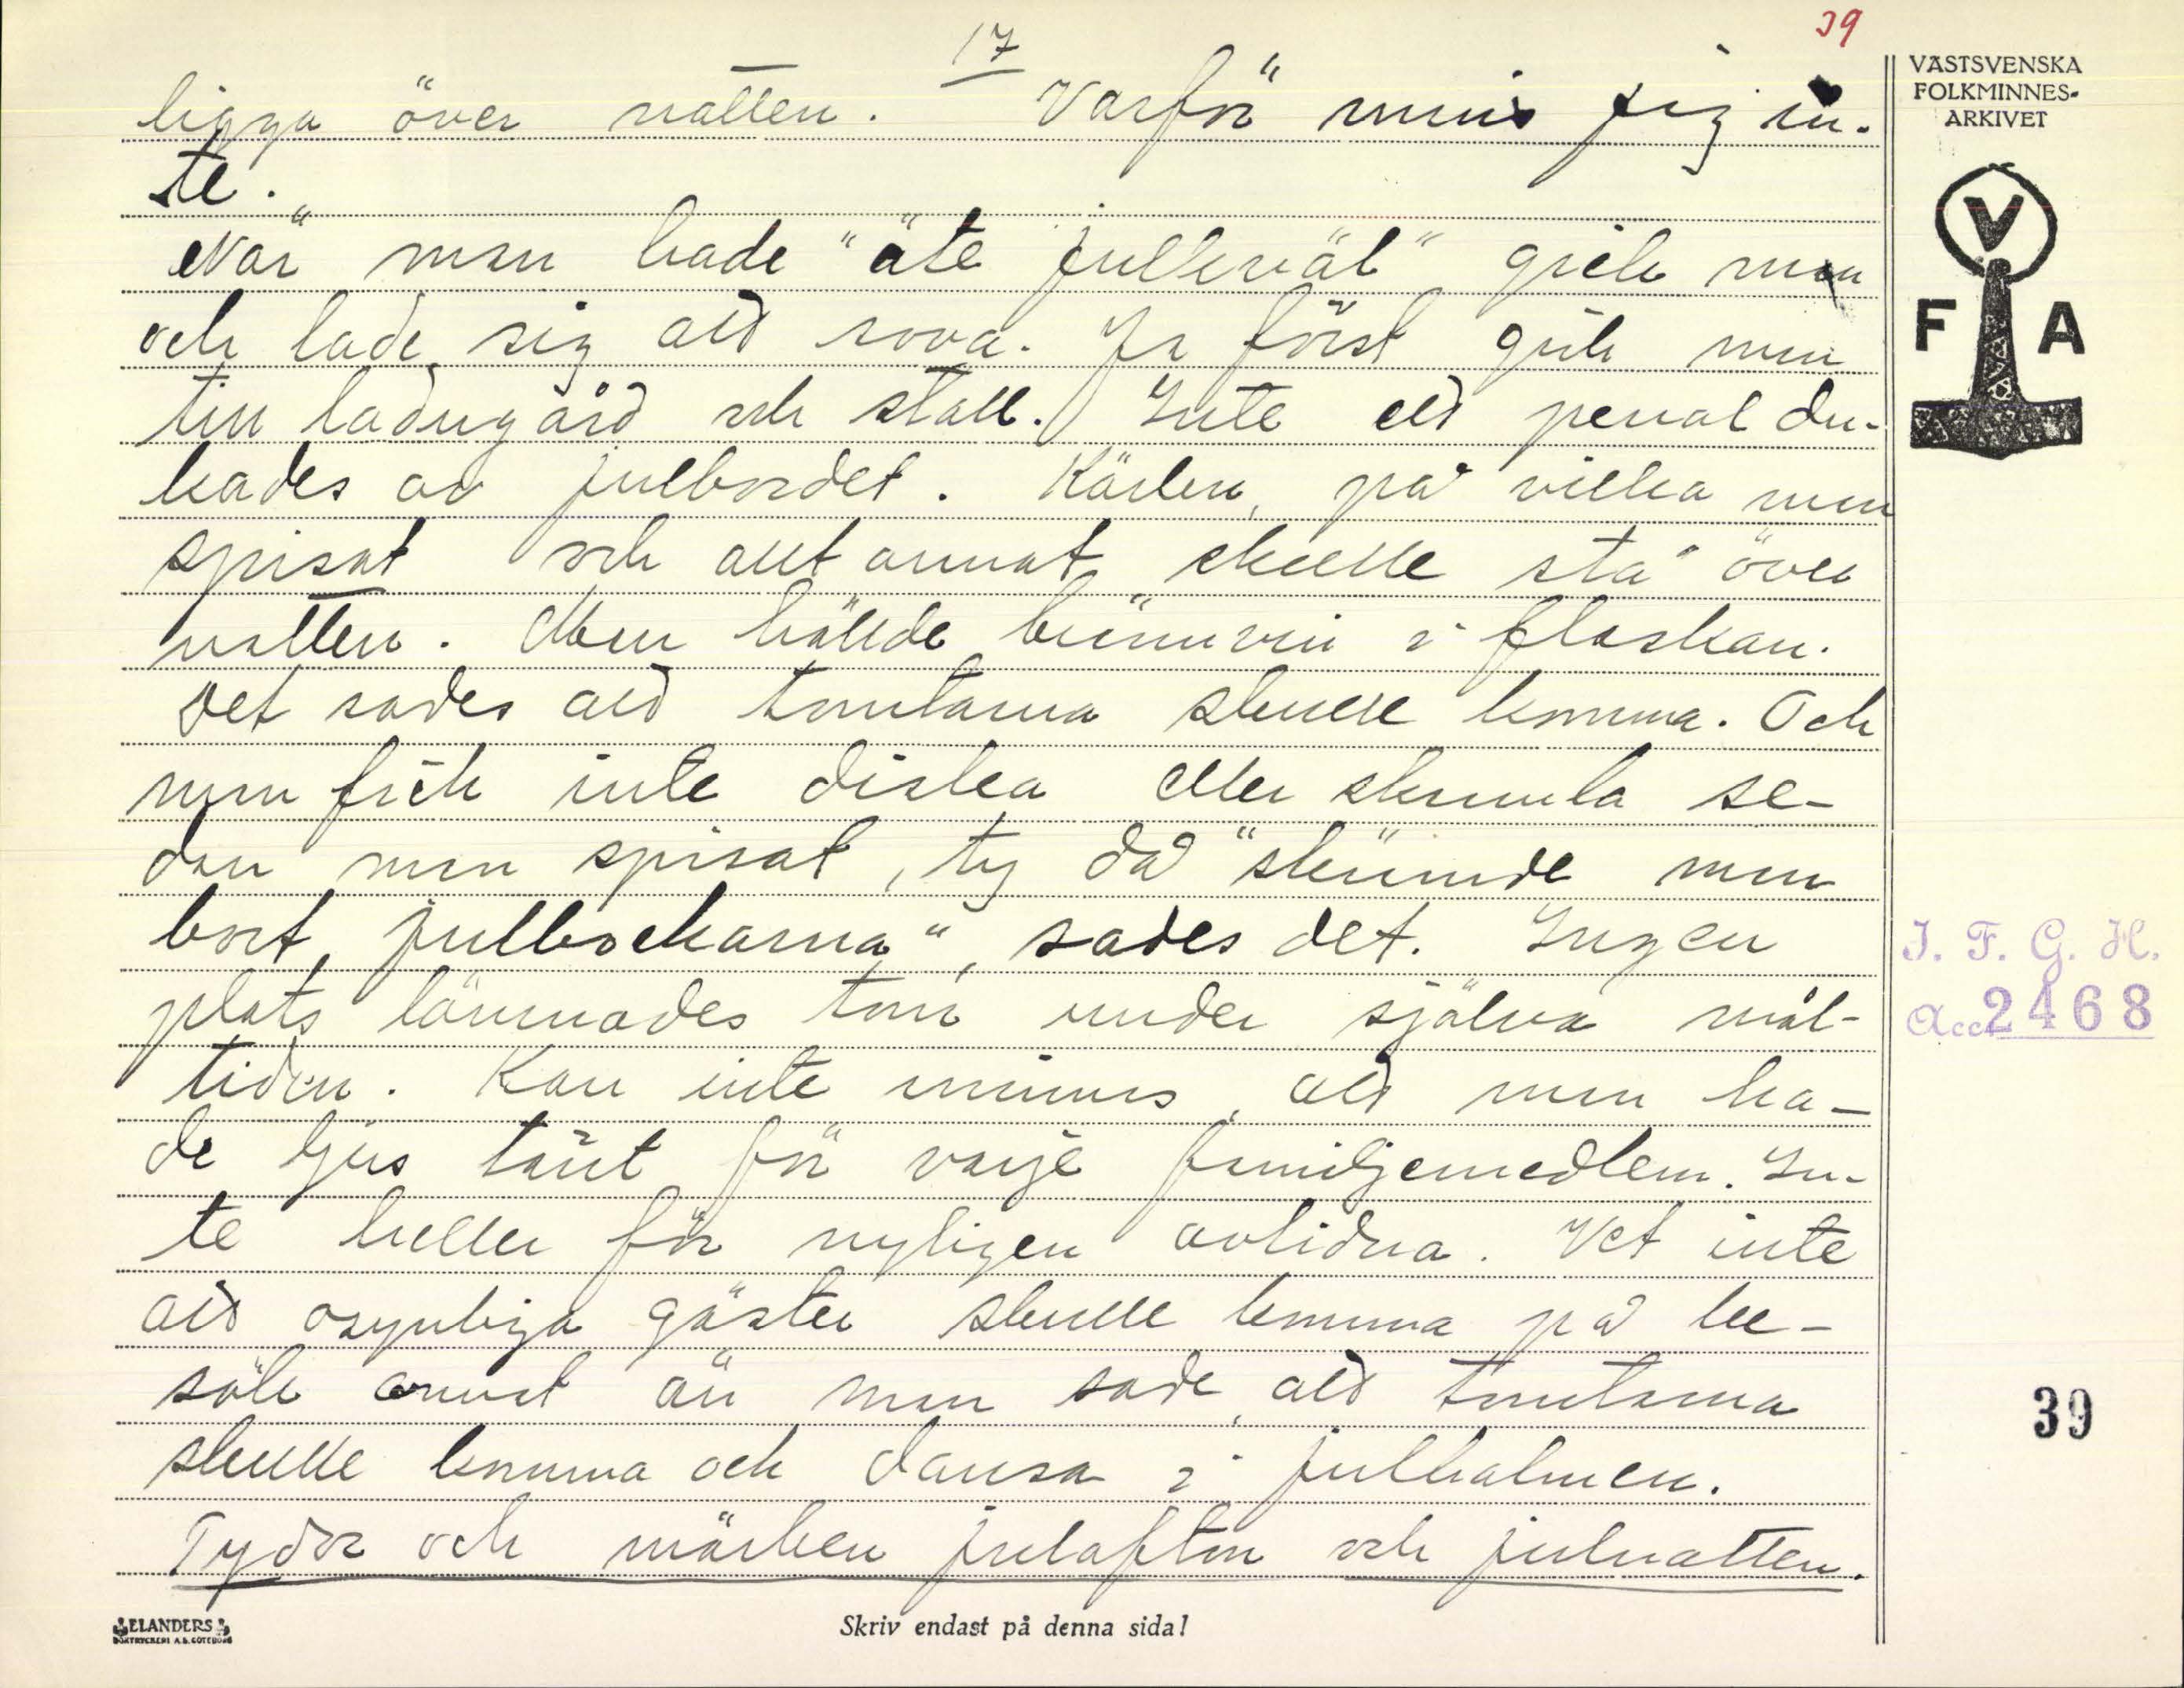 17
39
ligga över natten. Varför minis jag in-
te.
När man hade "äte julleväl" gick man
och lade sig att sova. Ja först gick man
till ladugård och stall. Inte ett penal du-
kades av julbordet. Kärlen, på vilka man
spisat och allt annat skulle stå över
natten. Man hällde brännvin i flaskan.
Det sades att tomtarna skulle komma. Och
man fick inte diska eller skramla se-
dan man spisat, ty då "skrämde man
bort julbockarna", sades det. Ingen
plats lämnades tom under själva mål-
tiden. Kan inte minnas, att man ha-
de ljus tänt för varje familjemedlem. In-
te heller för nyligen avlidna. Vet inte
att osynliga gäster skulle komma på be-
sök annat än man sade, att tomtarna
skulle komma och dansa i julhalmen.
Tydor och märken julafton och julnatten.
VÄSTSVENSKA
FOLKMINNES-
ARKIVET
V
F A
I. F. G. H.
Acc. 2468
39
ELANDERS
BOKTRYCKERI A.B. GÖTEBORG
Skriv endast på denna sida!